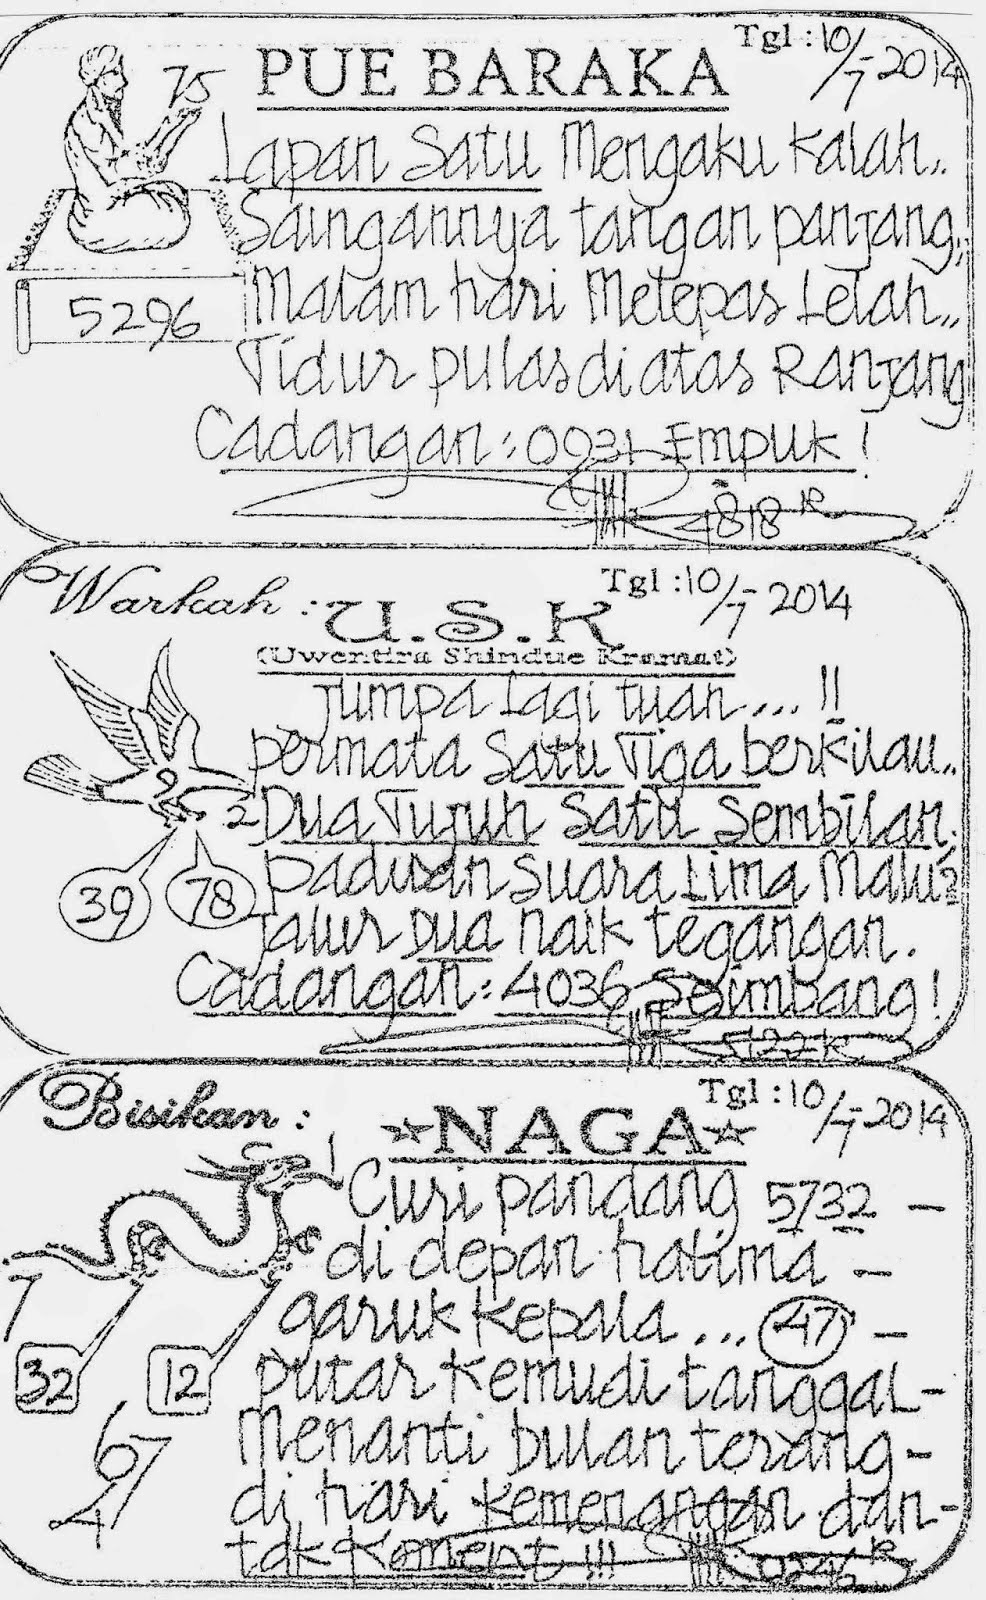 Tgl : 10/7-2014
PUE BARAKA
75
Lapan Satu Mengaku Kalah..
Saingannya tangan panjang,
Malam hari Melepas Lelah..
5296
Tidur pulas diatas Ranjang
Cadangan : 0931 Empuk !
4818 K
Warkah : U.S.K
Tgl : 10/7 2014
(Uwentira Shindue Kramat)
Jumpa Lagi tuan... !!
permata Satu Tiga berkilau..
2 Dua Tujuh Satu Sembilan,
39 78 paduan suara Lima Malu2
jalur Dua naik tegangan.
Cadangan : 4036 Seimbang !
5122 K
Bisikan :
Tgl : 10/7-2014
NAGA
1
Curi pandang 5732 -
di depan halima -
7
garuk kepala ... 47 -
32 12 putar kemudi tanggal -
Menanti bulan terang -
67
di hari kemenangan dan -
4
tak koment !!!